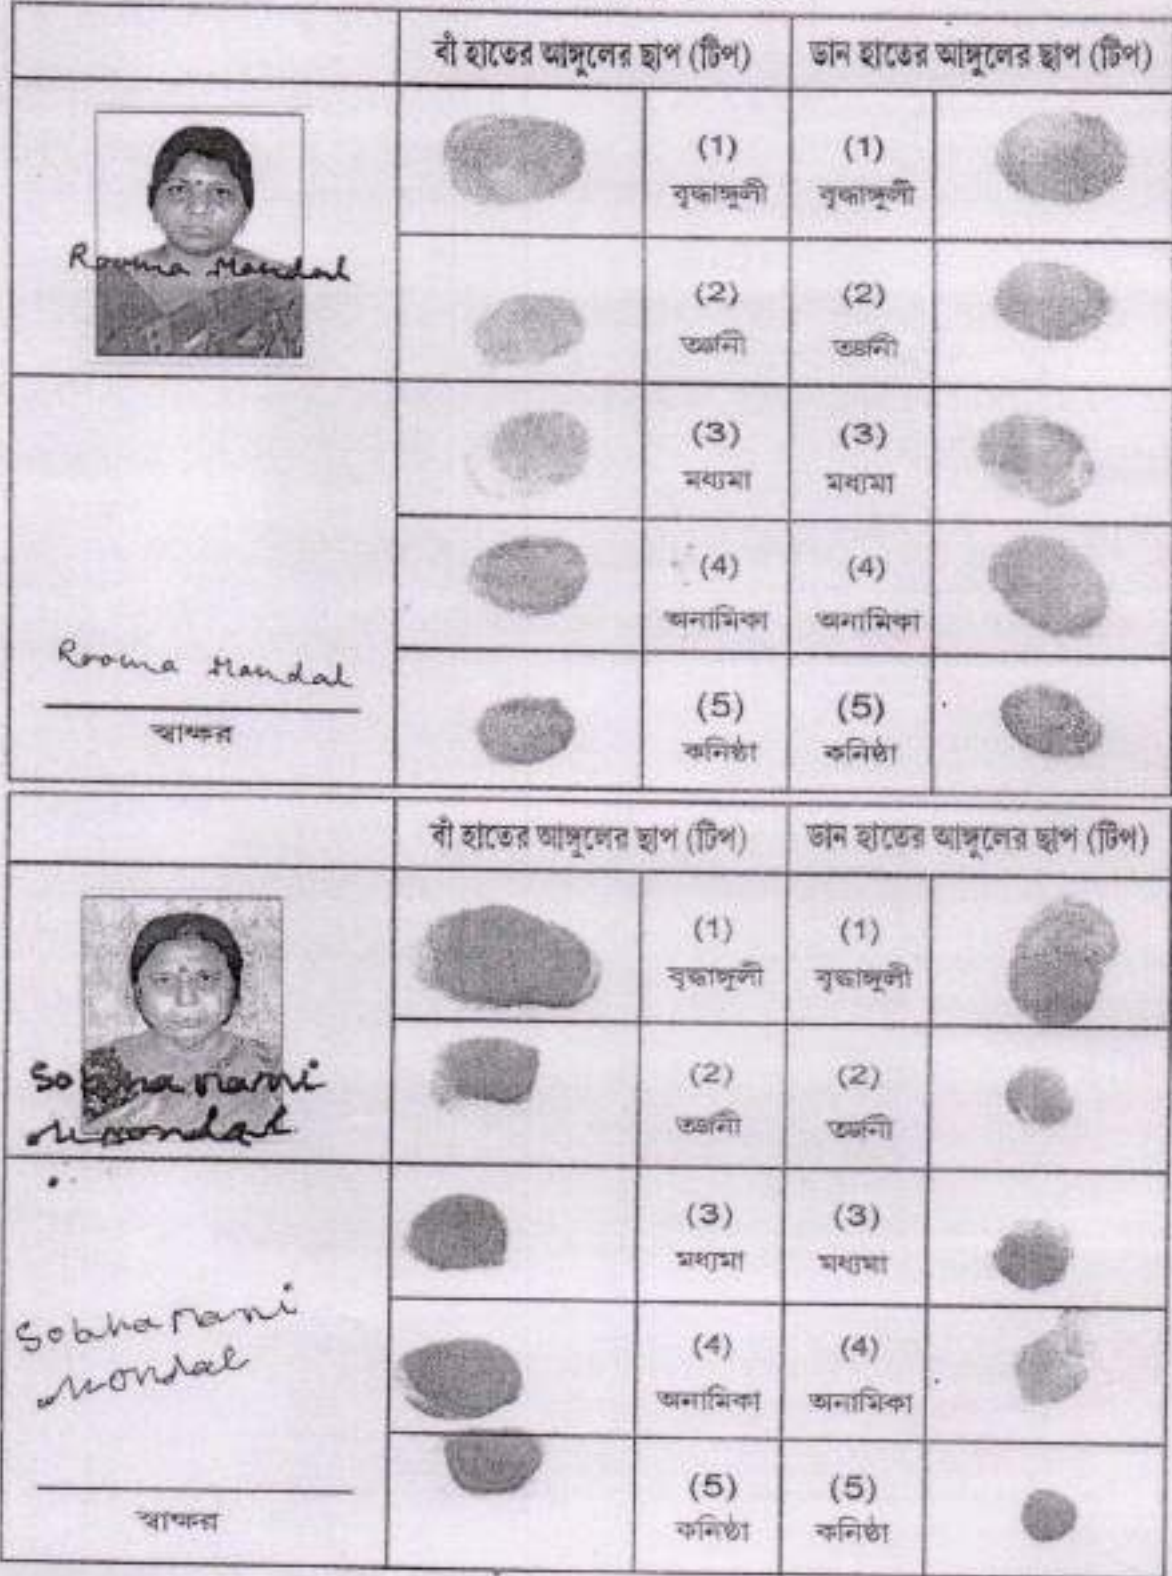 বাঁ হাতের আঙ্গুলের ছাপ (টিপ)
ডান হাতের আঙ্গুলের ছাপ (টিপ)
Rooma Mandal
(1)
বৃদ্ধাঙ্গুলী
(1)
বৃদ্ধাঙ্গুলী
(2)
তর্জনী
(2)
তর্জনী
(3)
মধ্যমা
(3)
মধ্যমা
(4)
অনামিকা
(4)
অনামিকা
Rooma Mandal
স্বাক্ষর
(5)
কনিষ্ঠা
(5)
কনিষ্ঠা
বাঁ হাতের আঙ্গুলের ছাপ (টিপ)
ডান হাতের আঙ্গুলের ছাপ (টিপ)
(1)
বৃদ্ধাঙ্গুলী
(1)
বৃদ্ধাঙ্গুলী
Sobharani
Mondal
(2)
তর্জনী
(2)
তর্জনী
(3)
মধ্যমা
(3)
মধ্যমা
Sobharani
Mondal
(4)
অনামিকা
(4)
অনামিকা
স্বাক্ষর
(5)
কনিষ্ঠা
(5)
কনিষ্ঠা